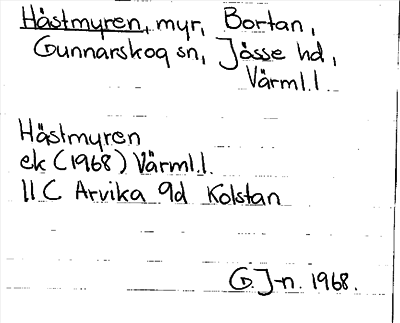 Hästmyren, myr, Bortan,
Gunnarskog sn, Jösse hd,
Värml.l.
Hästmyren
ek (1968) Värml.l.
11 C Arvika 9d Kolstan
G. J-n. 1968.